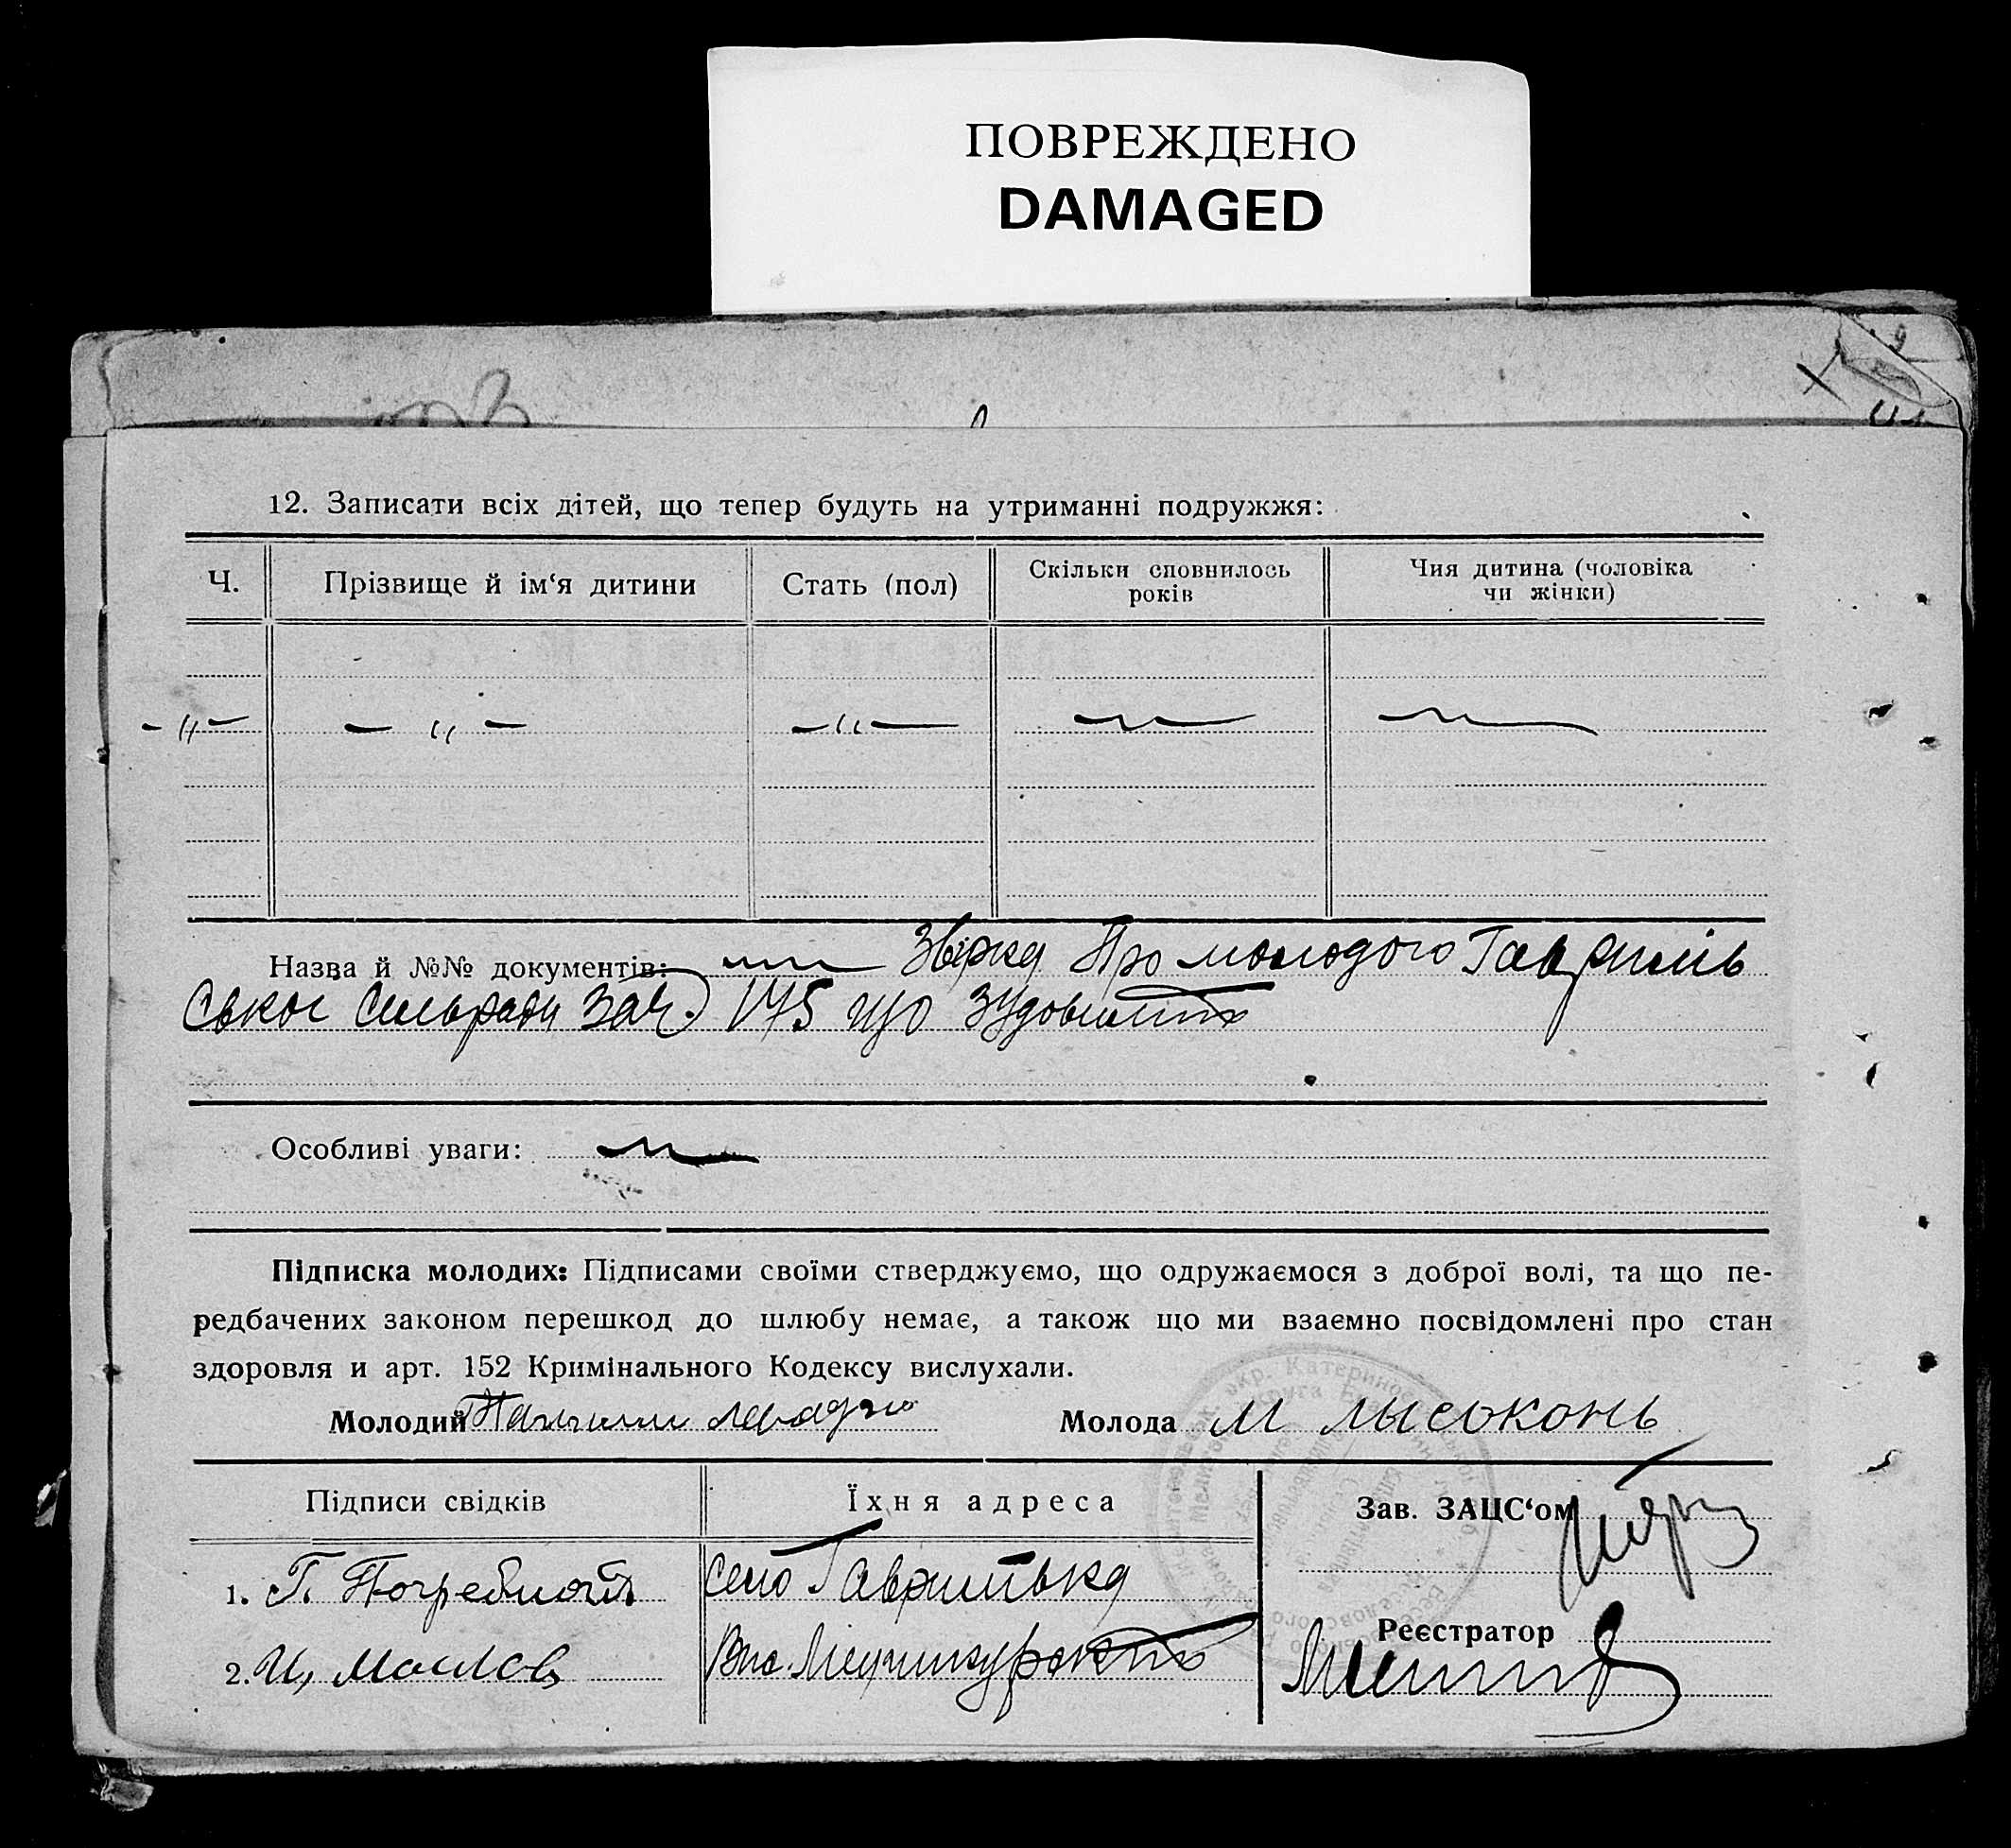 ПОВРЕЖДЕНО
DAMAGED
12. Записати всіх дітей, що тепер будуть на утриманні подружжя:
Ч. Прізвище й ім‘я дитини Стать (пол) Скільки сповнилось років Чия дитина (чоловіка чи жінки)
-〃- -〃- -〃-
Назва й №№ документів: Про молодого
Сельради За Ч. 175 що
Особливі уваги:
Підписка молодих: Підписами своїми стверджуємо, що одружаємося з доброї волі, та що пе-
редбачених законом перешкод до шлюбу немає, а також що ми взаємно посвідомлені про стан
здоровля и арт. 152 Кримінального Кодексу вислухали.
Молодий Молода М Лысоконь
Підписи свідків Їхня адреса Зав. ЗАЦС‘ом
1. Г. село Гаврилівка
Реєстратор
2. И, Маслов